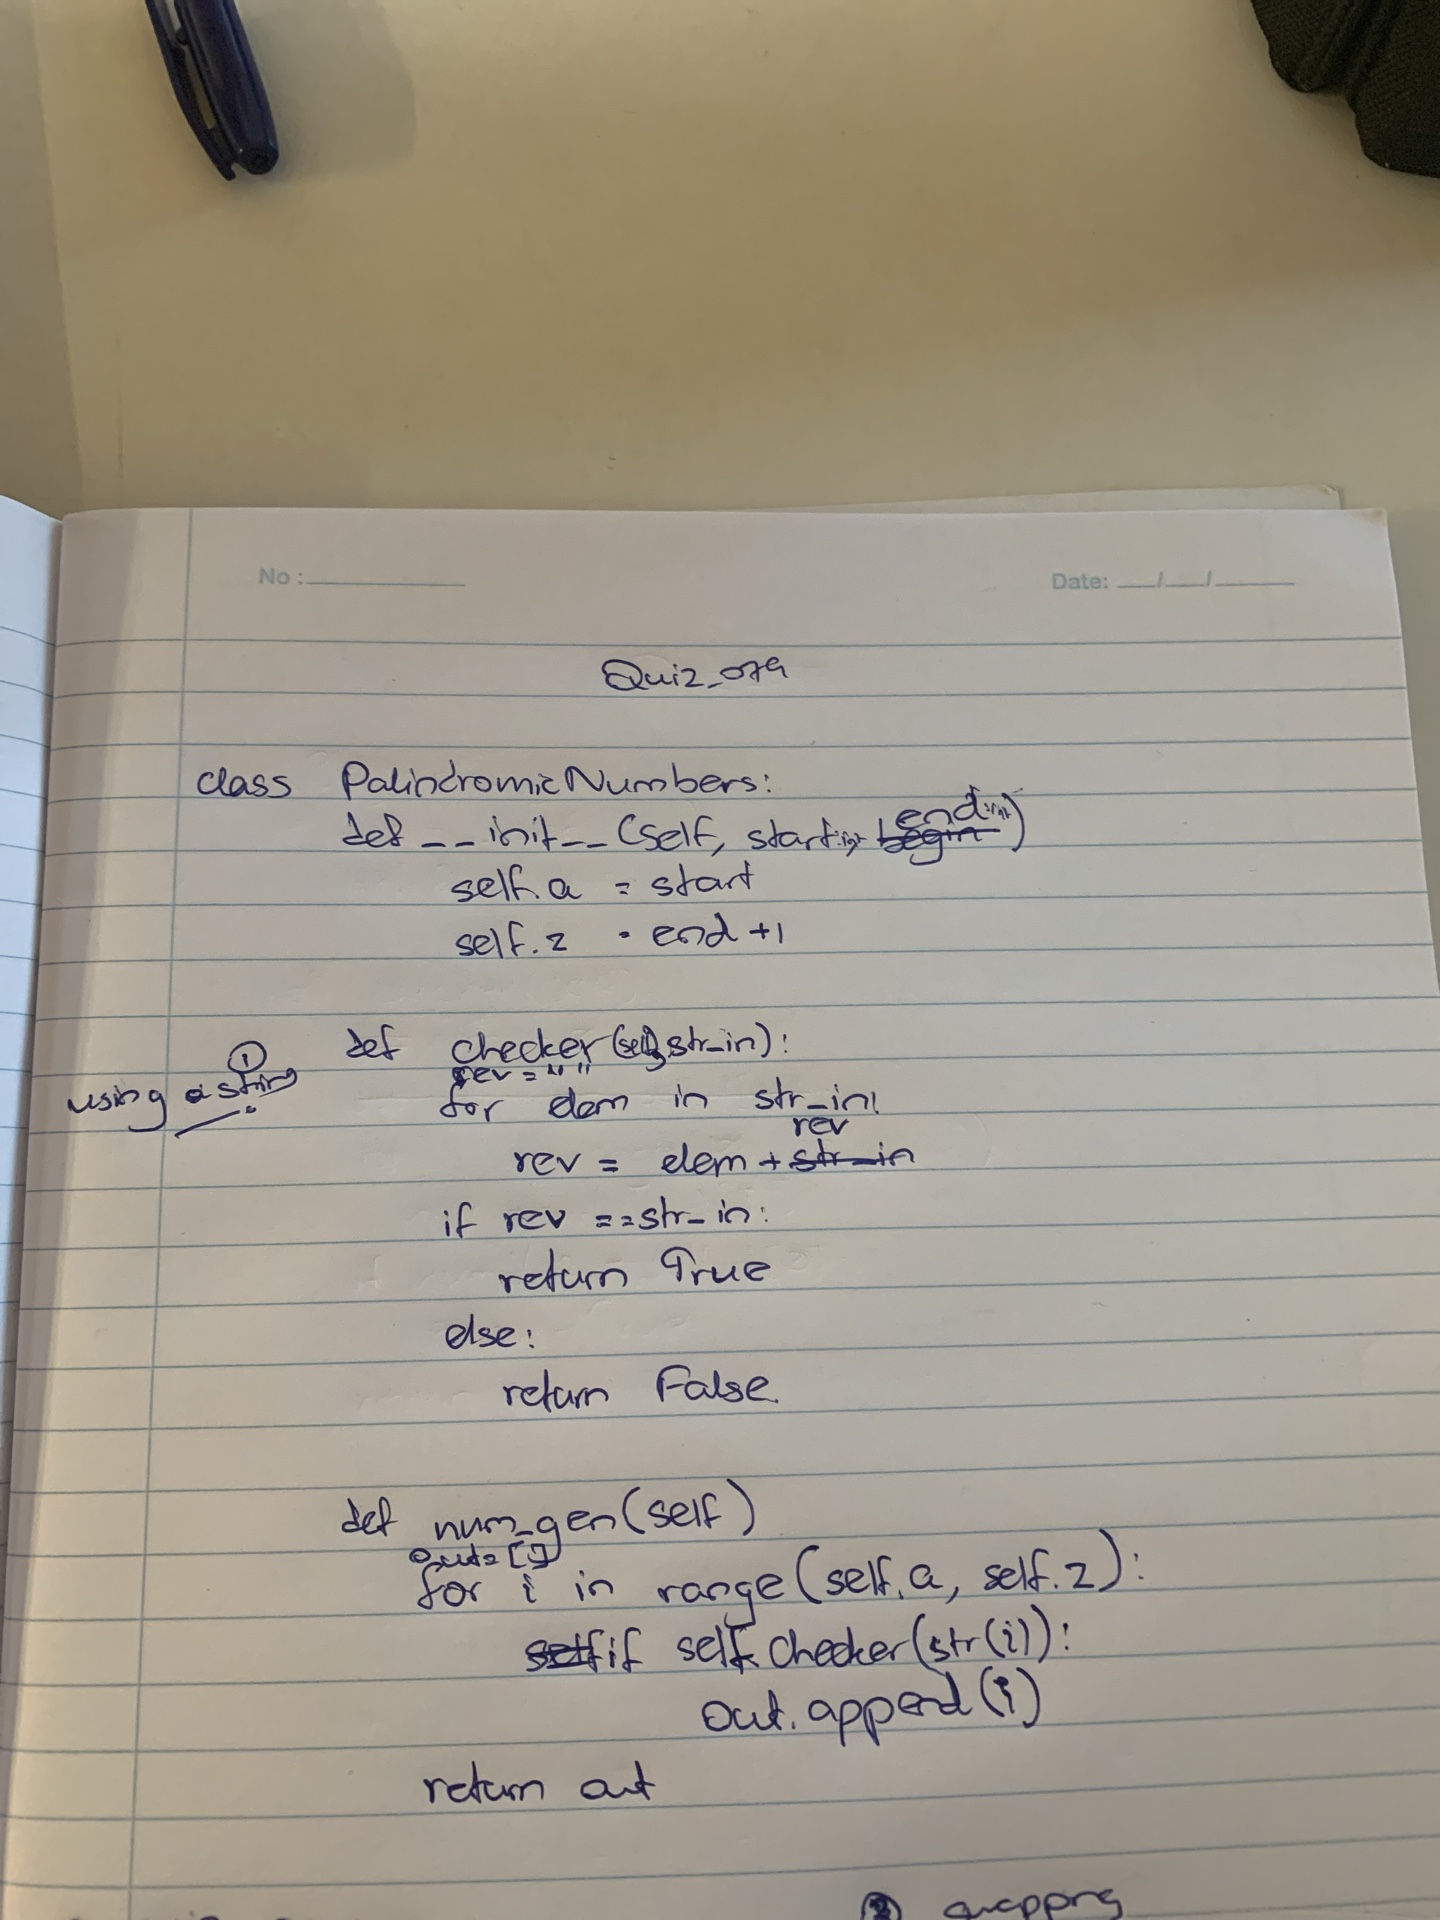 No :
Date: __/__/____
Quiz_079
class PalindromicNumbers:
def __init__(self, start:int, begin end:int)
self.a = start
self.z = end +1
① using a string
def checker(self, str_in):
rev = " "
for elem in str_in:
rev = elem + str_in rev
if rev ==str_in:
return True
else:
return False
def num_gen(self)
out= []
for i in range(self.a, self.z):
self if self.checker(str(i)):
out.append(i)
return out